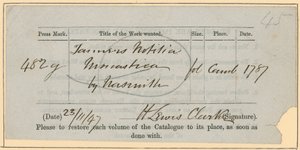 45
Press Mark. Title of the Work wanted. Size. Place. Date.
Tanners Notitia
462 g Monastica fol Camb 1787
by Nasmith
(Date) 23/11/47 H Lewis Clarke (Signature).
Please to restore each volume of the Catalogue to its place, as soon as
done with.